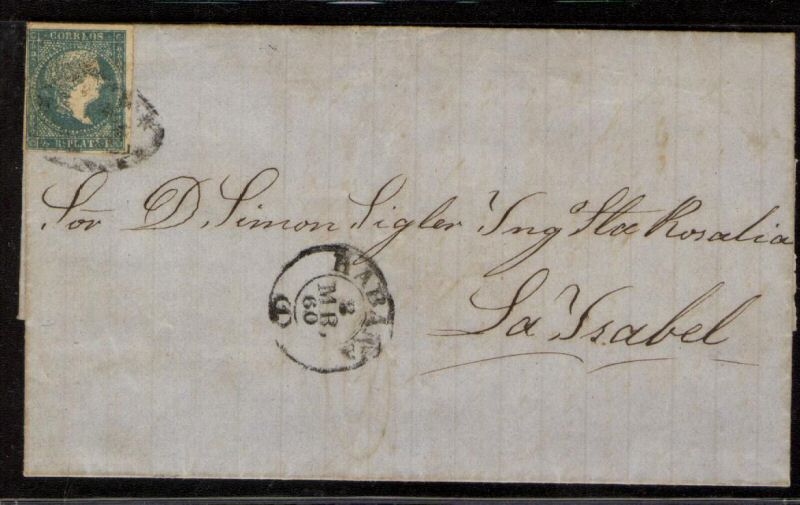 CORREOS
½ Rˢ PLATA F
Sōr D. Simon Sigler Yng Sta Rosalia
La Ysabel
HABANA
8
MR.
60
(1)